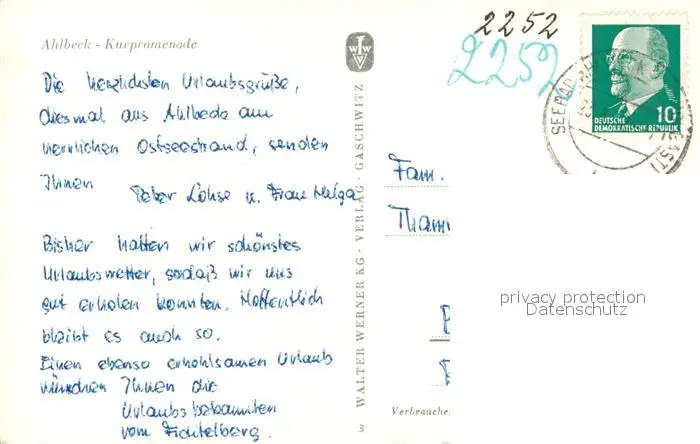 Ahlbeck - Kurpromenade
Die herzlichsten Urlaubsgrüße,
diesmal aus Ahlbeck am
herrlichen Ostseestrand, senden
Ihnen
Peter Lohse u. Frau Helga
Bisher hatten wir schönstes
Urlaubswetter, sodaß wir uns
gut erholen konnten. Hoffentlich
bleibt es auch so.
Einen ebenso erholsamen Urlaub
wünschen Ihnen die
Urlaubsbekannten
vom Fichtelberg.
WALTER WERNER KG · VERLAG · GASCHWITZ
3
2252
2252
DEUTSCHE
DEMOKRATISCHE REPUBLIK
10
SEEBAD
Fam.
privacy protection
Datenschutz
Verbraucher